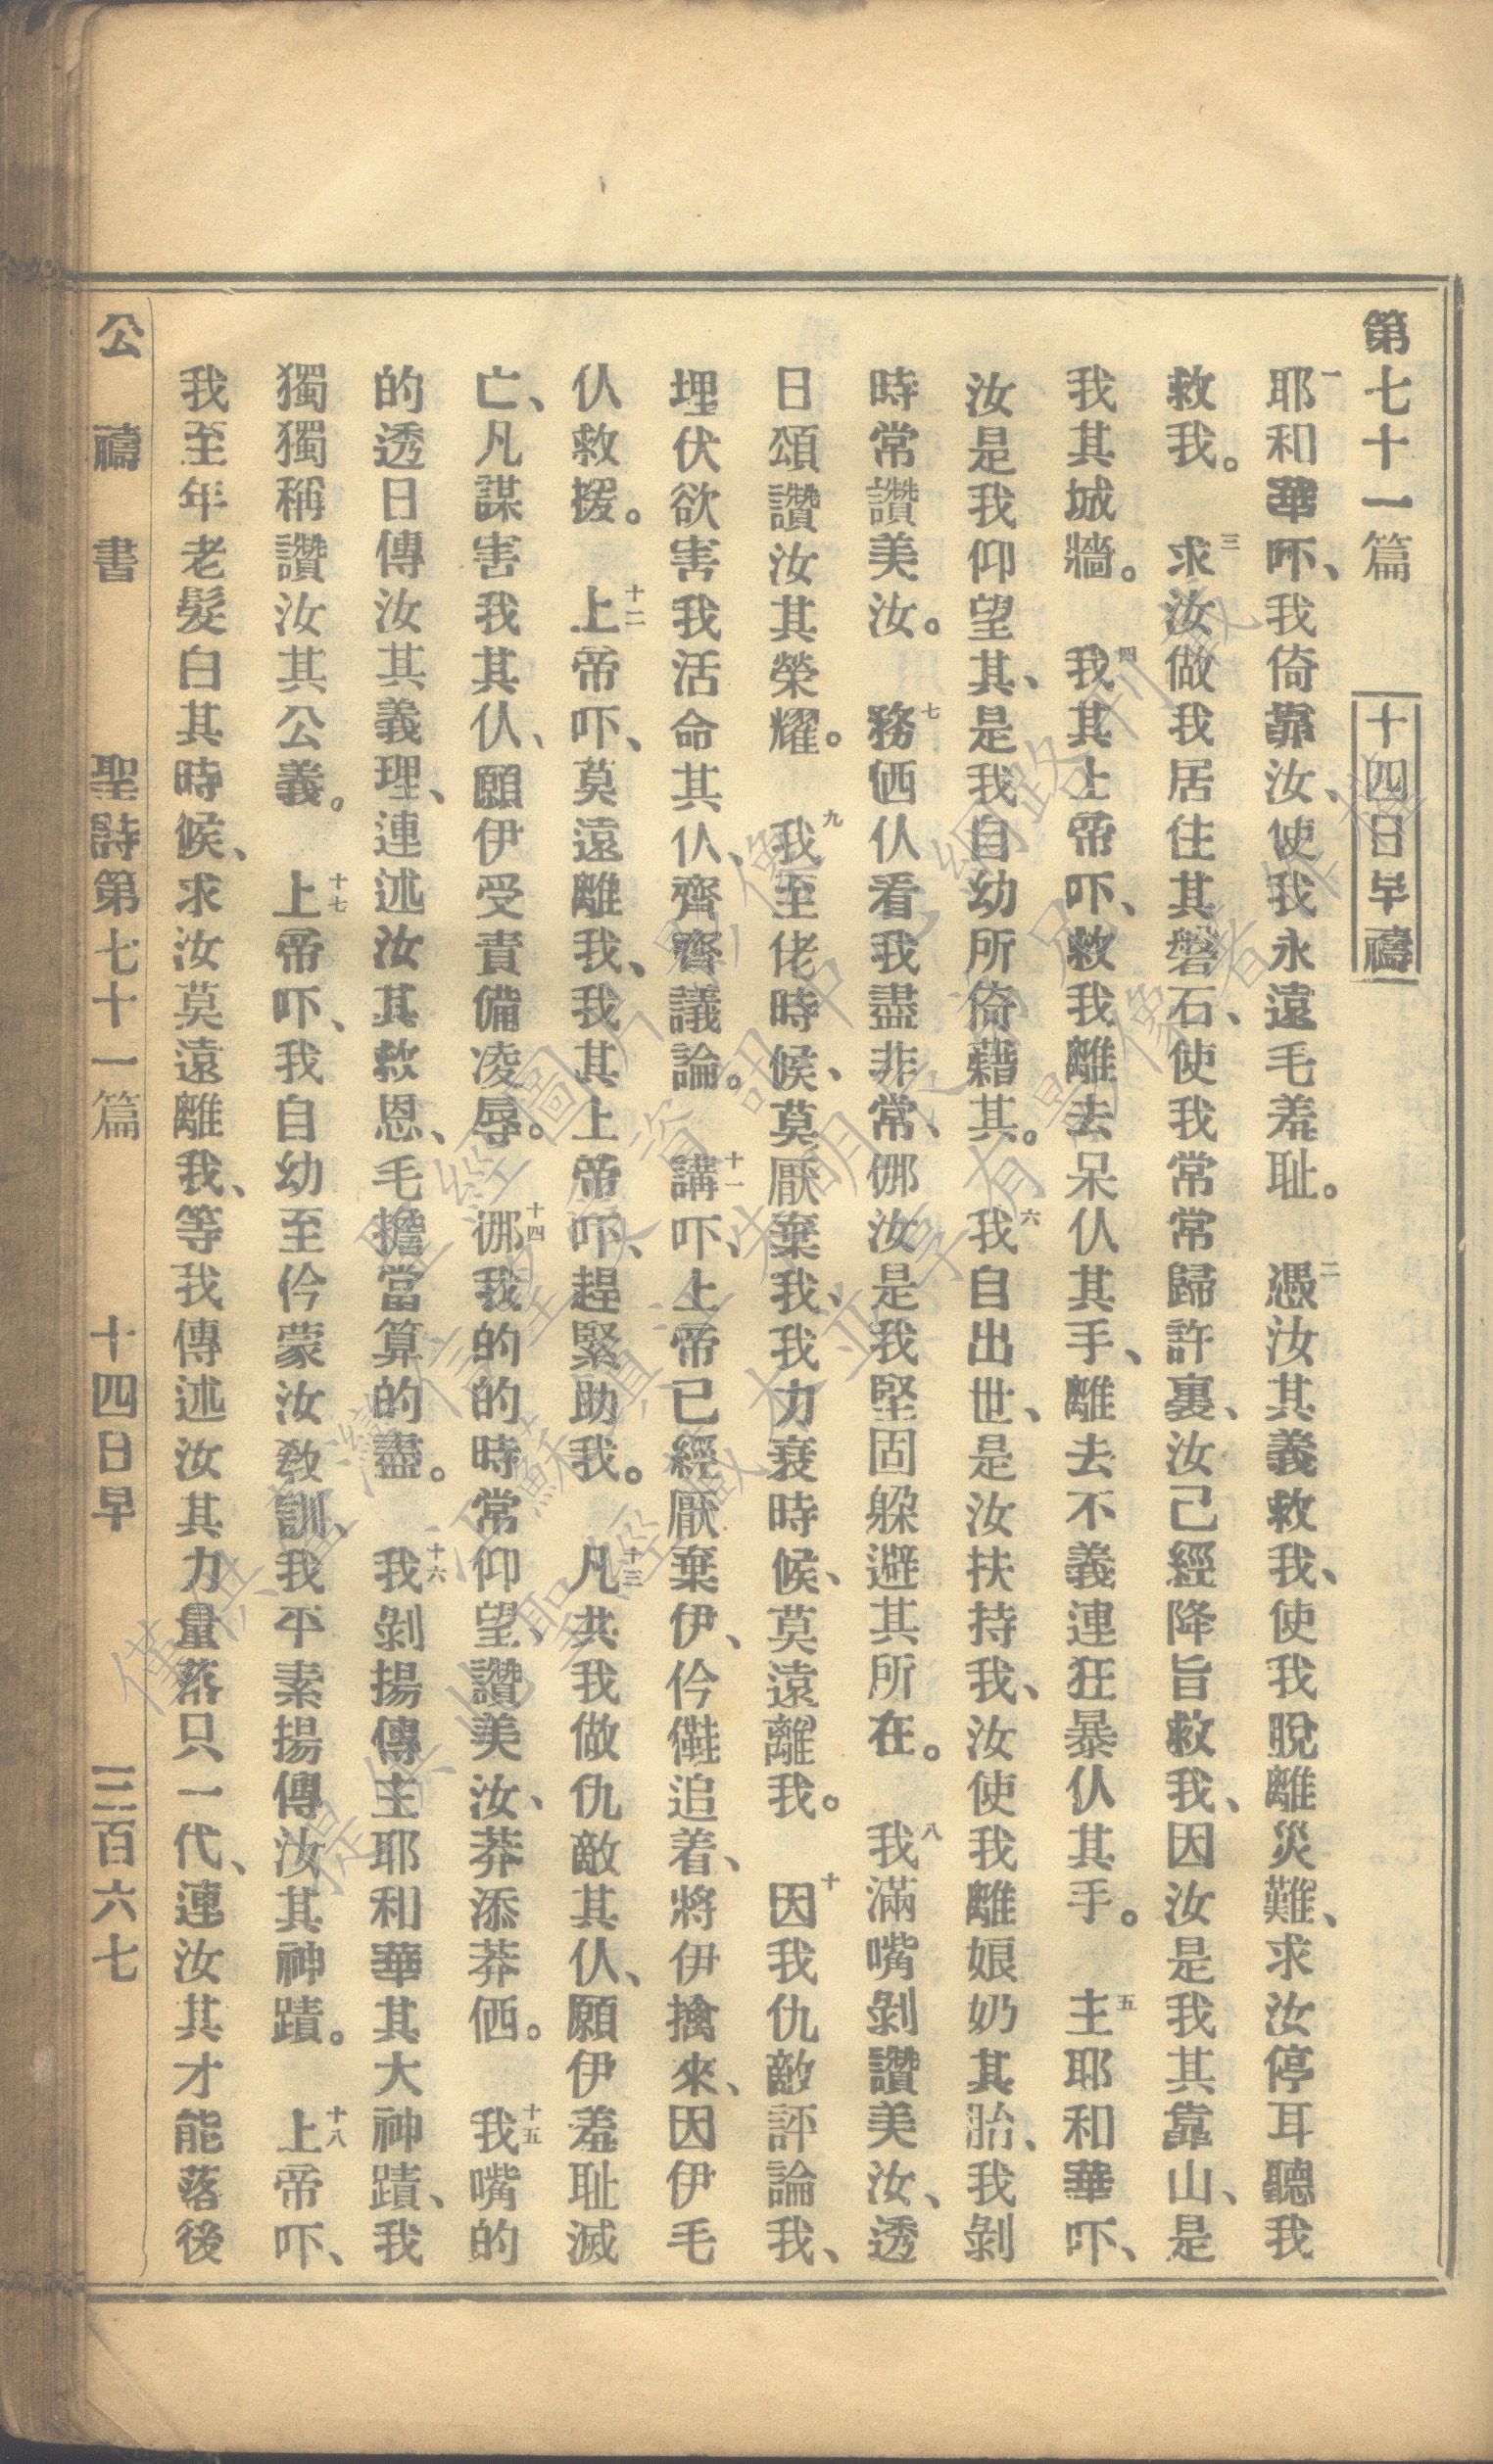 第七十一篇 十四日早禱
一耶和華吓、我倚靠汝、使我永遠毛羞耻。 二憑汝其義救我、使我脫離災難、求汝停耳聽我
救我。 三求汝做我居住其磐石、使我常常歸許裏、汝已經降旨救我、因汝是我其靠山、是
我其城牆。 四我其上帝吓、救我離去呆仈其手、離去不義連狂暴仈其手。 五主耶和華吓、
汝是我仰望其、是我自幼所倚藉其。 六我自出世、是汝扶持我、汝使我離娘奶其胎、我剝
時常讚美汝。 七務価仈看我盡非常、㑚汝是我堅固躲避其所在。 八我滿嘴剝讚美汝、透
日頌讚汝其榮耀。 九我至佬時候、莫厭棄我、我力衰時候、莫遠離我。 十因我仇敵評論我、
埋伏欲害我活命其仈、齊齊議論。 十一講吓、上帝已經厭棄伊、仱㒓追着、將伊擒來、因伊毛
仈救援。 十二上帝吓、莫遠離我、我其上帝吓、趕緊助我。 十三凡共我做仇敵其仈、願伊羞耻滅
亡、凡謀害我其仈、願伊受責備凌辱。 十四㑚我的的時常仰望讚美汝、莽添莽価。 十五我嘴的
的透日傳汝其義理、連述汝其救恩、毛擔當算的盡。 十六我剝揚傳主耶和華其大神蹟、我
獨獨稱讚汝其公義。 十七上帝吓、我自幼至仱蒙汝教訓、我平素揚傳汝其神蹟。 十八上帝吓、
我至年老髮白其時候、求汝莫遠離我、等我傳述汝其力量落只一代、連汝其才能落後
公禱書 聖詩第七十一篇 十四日早 三百六七